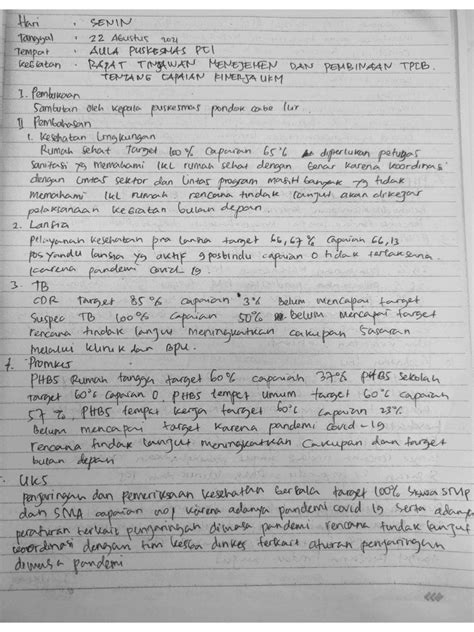 Hari : SENIN
Tanggal : 22 Agustus 2021
Tempat : AULA PUSKESMAS PCI
Kegiatan : RAPAT TINJAWAN MENEJEMEN DAN PEMBINAAN TPCB
TENTANG CAPAIAN KINERJA UKM
I. Pembukaan
Sambutan oleh kepala puskesmas pondok cabe ilir
II Pembahasan
1. Kesehatan Lingkungan
Rumah sehat Target 100% Capaian 65% diperlukan petugas
sanitasi yg memahami IKL rumah sehat dengan benar karena koordinasi
dengan lintas sektor dan lintas program masih banyak yg tidak
memahami IKL rumah rencana tindak lanjut akan dikejar
pelaksanaan kegiatan bulan depan.
2. Lansia
pelayanan kesehatan pra lansia target 66,67% capaian 66,13
posyandu lansia yg aktif 9 posbindu capaian 0 tidak terlaksana
karena pandemi covid 19
3. TB
CDR Target 85% capaian 3% Belum mencapai target
Suspec TB 100% capaian 50% Belum mencapai target
rencana tindak lanjut meningkatkan cakupan sasaran
melalui klinik dan BPM.
Promkes
PHBS Rumah tangga target 60% capaian 37% PHBS sekolah
target 60% capaian 0 PHBS tempat umum target 60% capaian
57% PHBS tempat kerja target 60% capaian 23%
Belum mencapai target karena pandemi covid-19
rencana tindak lanjut meningkatkan cakupan dan target
bulan depan
UKS
penjaringan dan pemeriksaan kesehatan berkala target 100% siswa SMP
dan SMA capaian karena adanya pandemi covid 19 serta adanya
peraturan terkait penjaringan dimasa pandemi rencana tindak lanjut
koordinasi dengan tim kesga dinkes terkait aturan penjaringan
dimasa pandemi